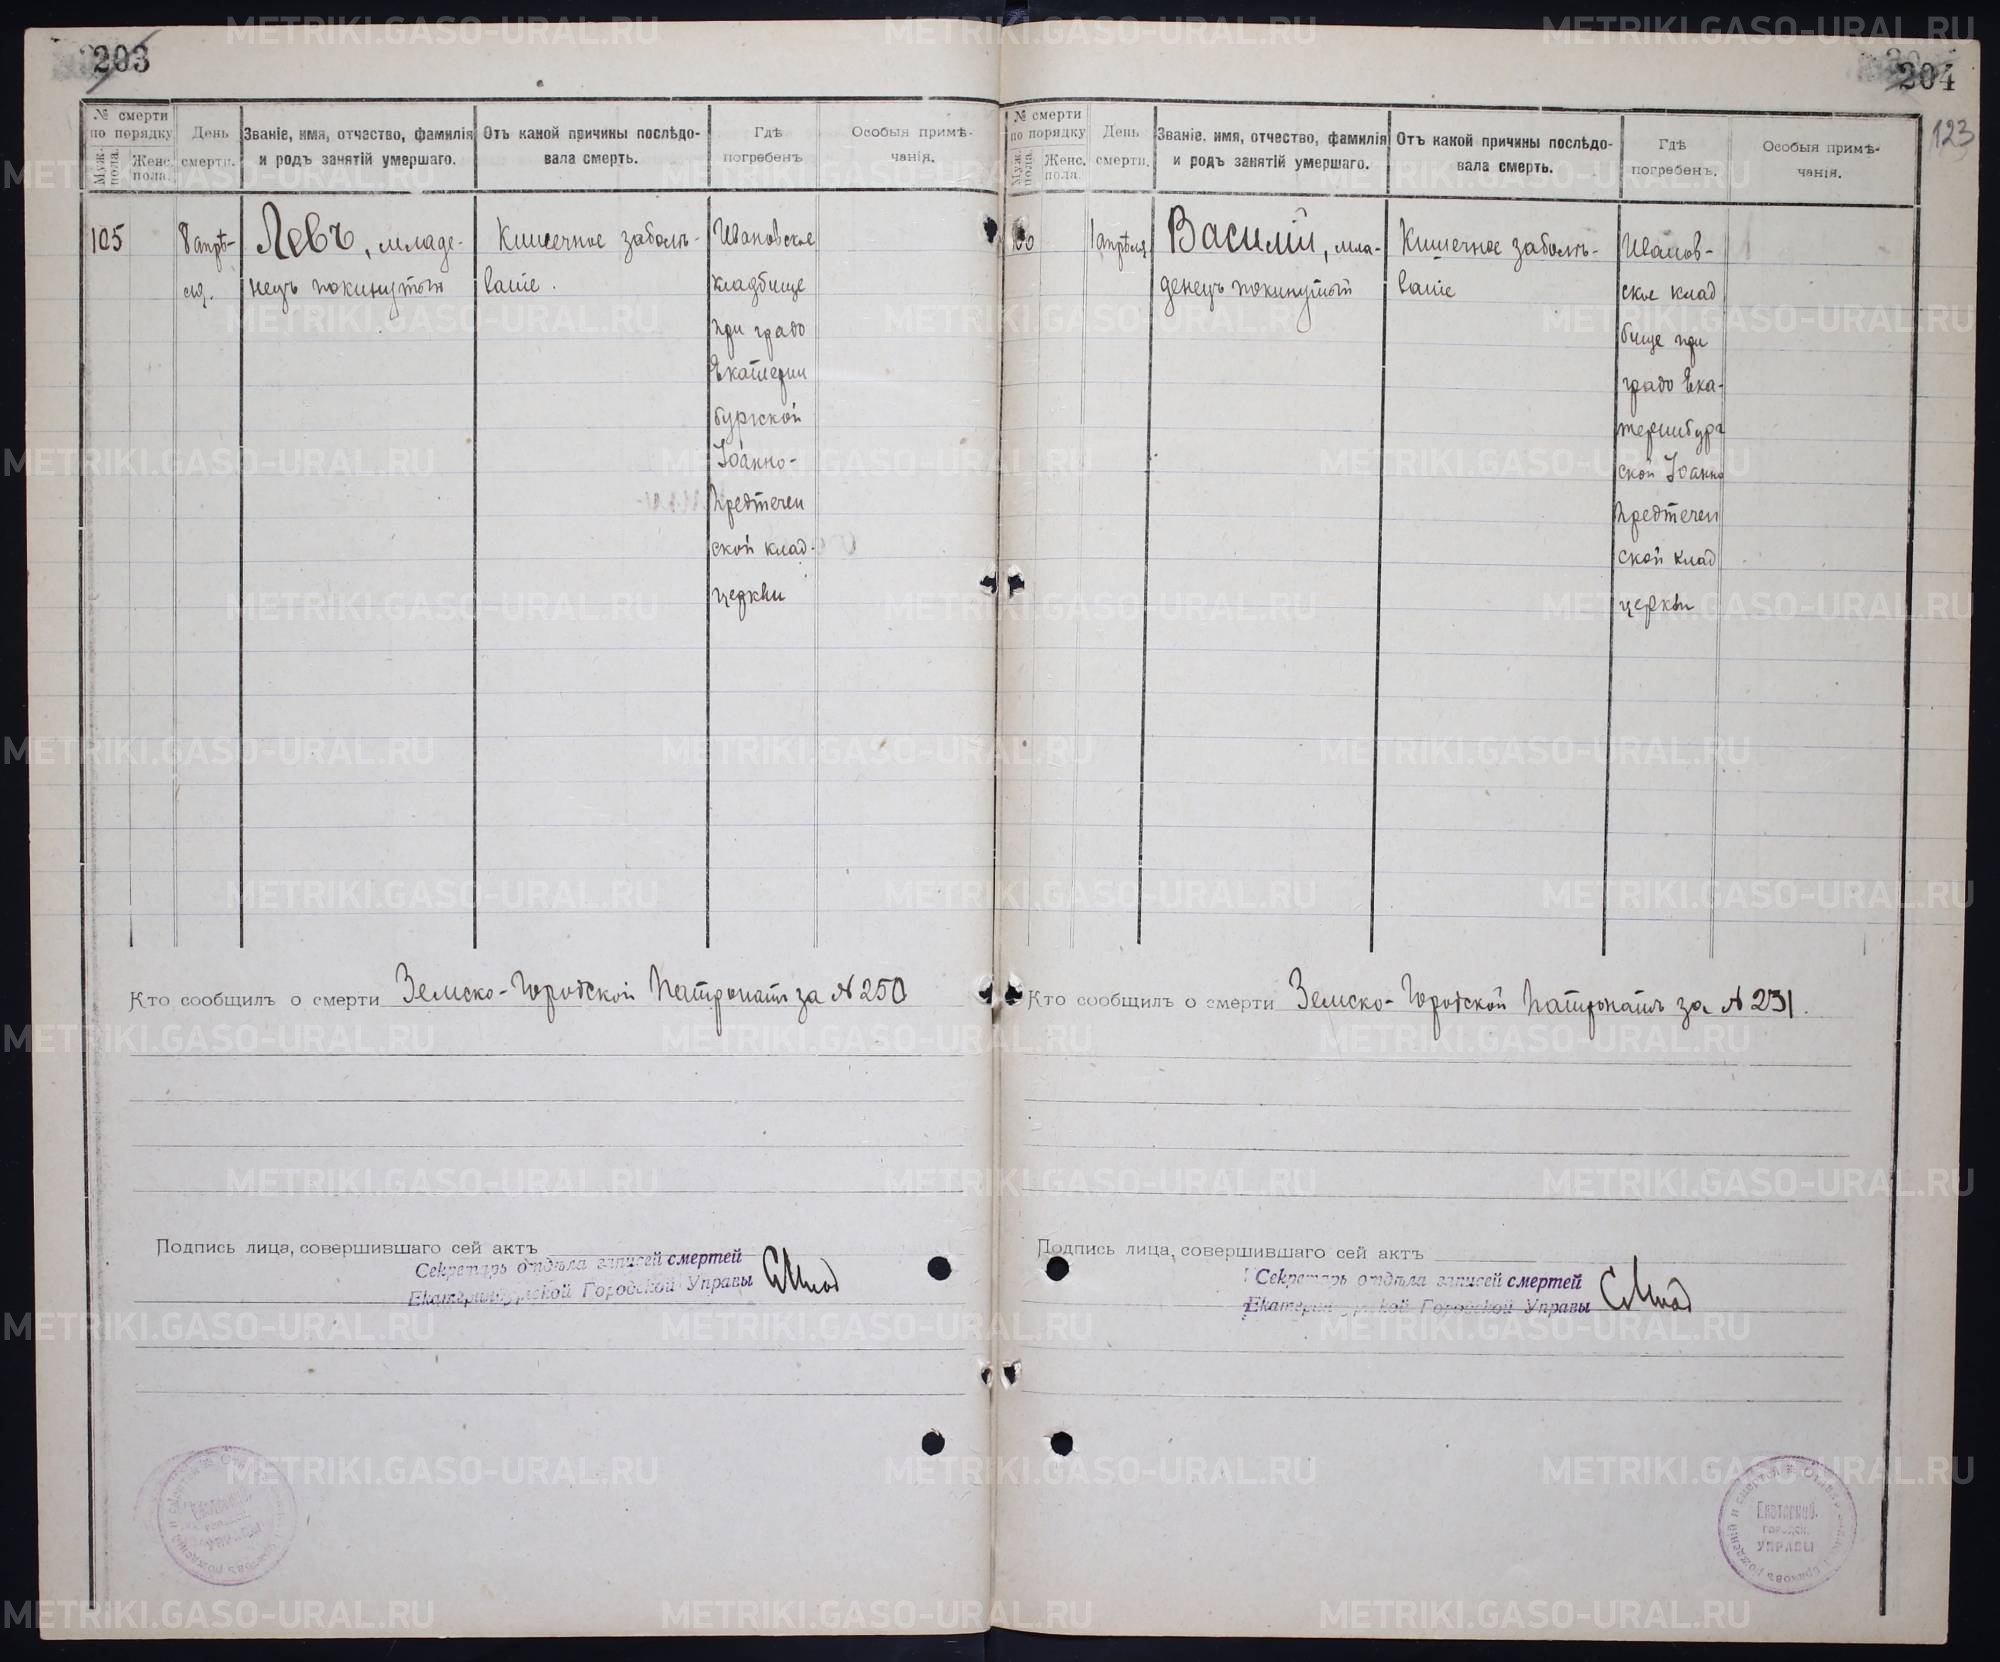 203
№ смерти по порядку
Муж. пола.
Женс. пола.
День смерти.
Званіе, имя, отчество, фамилія и родъ занятій умершаго.
Отъ какой причины послѣдовала смерть.
Гдѣ погребенъ
Особыя примѣчанія.
105
8 апрѣ-
ля.
Левъ, младе-
нецъ покинутый
Кишечное заболѣ-
ваніе.
Ивановское
кладбище
при градо
Екатерин
бургской
Іоанно-
Предтечен
ской клад.
церкви
Кто сообщилъ о смерти Земско-Городской Патронатъ за № 250
Подпись лица, совершившаго сей актъ
Секретарь отдѣла записей смертей
Екатеринбургской Городской Управы
204
123
№ смерти по порядку
Муж. пола.
Женс. пола.
День смерти.
Званіе, имя, отчество, фамилія и родъ занятій умершаго.
Отъ какой причины послѣдовала смерть.
Гдѣ погребенъ.
Особыя примѣчанія.
1 апрѣля
Василій, мла-
денецъ покинутый
Кишечное заболѣ-
ваніе
Иванов-
ское клад
бище при
градо Ека-
теринбург
ской Іоанно
Предтечен
ской клад
церкви
Кто сообщилъ о смерти Земско-Городской Патронатъ за № 231.
Подпись лица, совершившаго сей актъ
Секретарь отдѣла записей смертей
Екатеринбургской Городской Управы
УПРАВЫ
METRIKI.GASO-URAL.RU